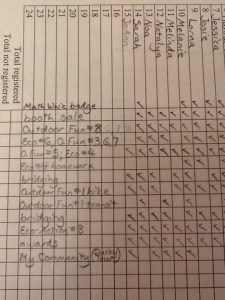 7 Jessica
8 Josie
9 Lorna
10 Melanie
11 Melinda
12 Natalya
13 Noa
14 Sarah
15
16
17
18
19
20
21
22
23
24
Total registered
Total not registered
Math Whiz badge
booth sale
Outdoor Fun #8
Ecn #6, O. Fun #3,6,7
O. Fun #5, Ecn #4
homework
bridging
Outdoor Fun #1 hike
Outdoor Fun #1
bridging
#8
awards
My Community